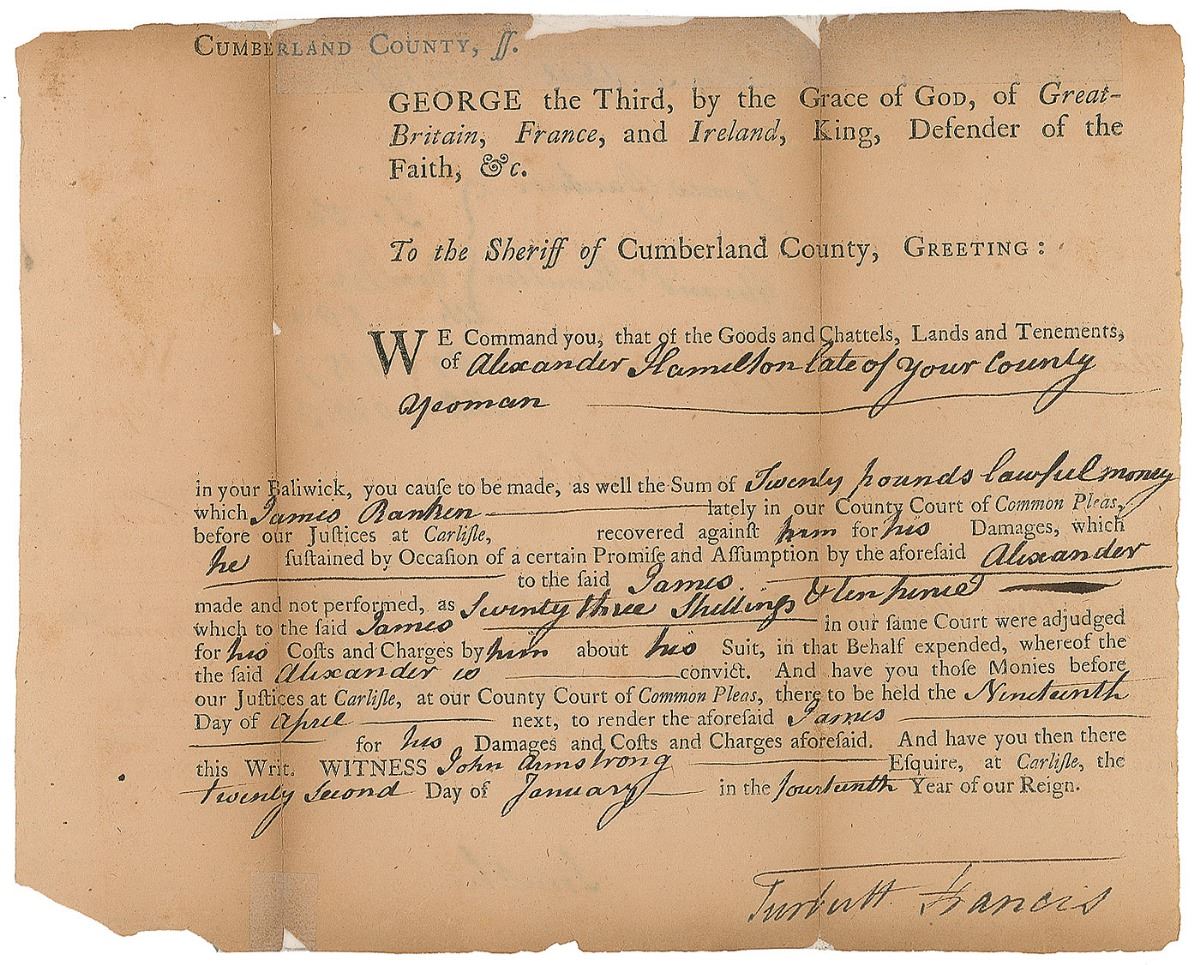 CUMBERLAND COUNTY, ſſ.
GEORGE the Third, by the Grace of GOD, of Great-
Britain, France, and Ireland, King, Defender of the
Faith, &c.
To the Sheriff of Cumberland County, GREETING:
WE Command you, that of the Goods and Chattels, Lands and Tenements,
of Alexander Hamilton late of your County
Yeoman
in your Baliwick, you cauſe to be made, as well the Sum of Twenty pounds lawful money
which James Ranken lately in our County Court of Common Pleas,
before our Juſtices at Carliſle, recovered againſt him for his Damages, which
he ſuſtained by Occaſion of a certain Promiſe and Aſſumption by the aforeſaid Alexander
to the ſaid James
made and not performed, as Twenty three Shillings & ten pence
which to the ſaid James in our ſame Court were adjudged
for his Coſts and Charges by him about his Suit, in that Behalf expended, whereof the
the ſaid Alexander is convict. And have you thoſe Monies before
our Juſtices at Carliſle, at our County Court of Common Pleas, there to be held the Nineteenth
Day of April next, to render the aforeſaid James
for his Damages and Coſts and Charges aforeſaid. And have you then there
this Writ. WITNESS John Armstrong Eſquire, at Carliſle, the
twenty Second Day of January in the fourteenth Year of our Reign.
Turbutt Francis